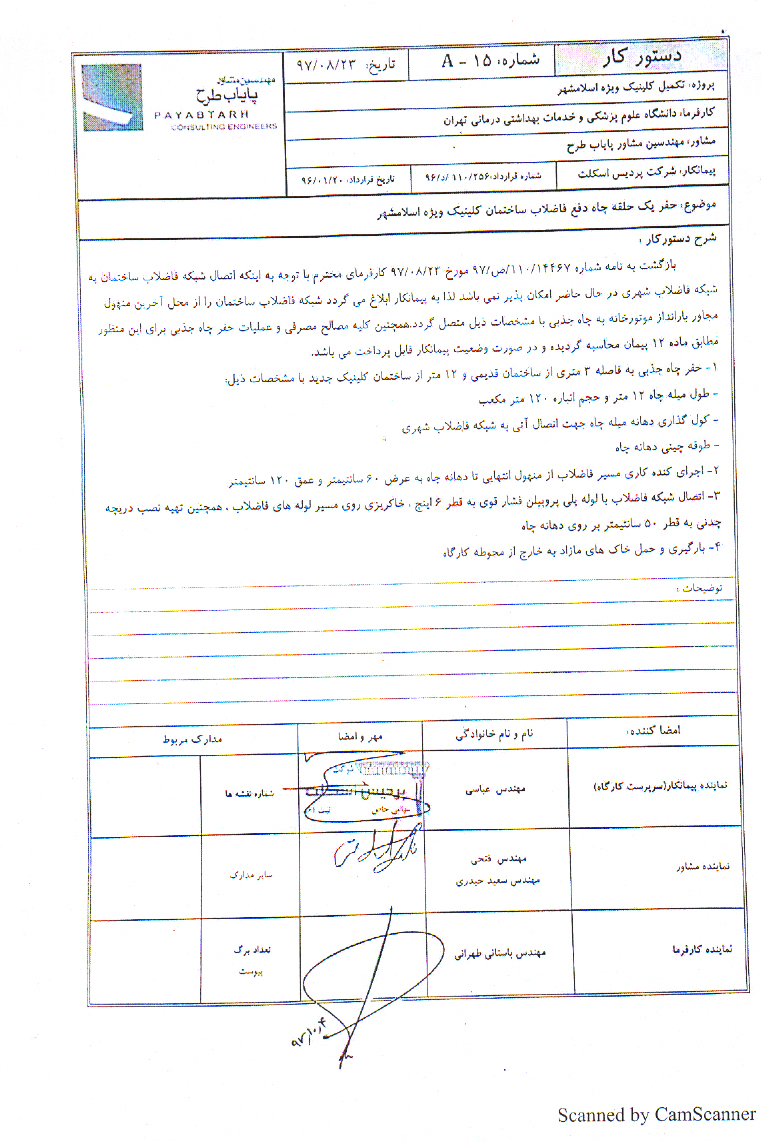 دستور کار
شماره: A - ۱۵
تاریخ: ۹۷/۰۸/۲۳
مهندسین مشاور
پایاب طرح
PAYABTARH
CONSULTING ENGINEERS
پروژه: تکمیل کلینیک ویژه اسلامشهر
کارفرما: دانشگاه علوم پزشکی و خدمات بهداشتی درمانی تهران
مشاور: مهندسین مشاور پایاب طرح
پیمانکار: شرکت پردیس اسکلت
شماره قرارداد: ۱۱۰/۲۵۶/د/۹۶
تاریخ قرارداد: ۹۶/۰۱/۲۰
موضوع: حفر یک حلقه چاه دفع فاضلاب ساختمان کلینیک ویژه اسلامشهر
شرح دستورکار :
بازگشت به نامه شماره ۱۱۰/۱۴۴۶۷/ص/۹۷ مورخ ۹۷/۰۸/۲۳ کارفرمای محترم با توجه به اینکه اتصال شبکه فاضلاب ساختمان به
شبکه فاضلاب شهری در حال حاضر امکان پذیر نمی باشد لذا به پیمانکار ابلاغ می گردد شبکه فاضلاب ساختمان را از محل آخرین منهول
مجاور بارانداز موتورخانه به چاه جذبی با مشخصات ذیل متصل گردد.همچنین کلیه مصالح مصرفی و عملیات حفر چاه جذبی برای این منظور
مطابق ماده ۱۲ پیمان محاسبه گردیده و در صورت وضعیت پیمانکار قابل پرداخت می باشد.
۱- حفر چاه جذبی به فاصله ۳ متری از ساختمان قدیمی و ۱۲ متر از ساختمان کلینیک جدید با مشخصات ذیل:
- طول میله چاه ۱۲ متر و حجم انباره ۱۲۰ متر مکعب
- کول گذاری دهانه میله چاه جهت اتصال آتی به شبکه فاضلاب شهری
- طوقه چینی دهانه چاه
۲- اجرای کنده کاری مسیر فاضلاب از منهول انتهایی تا دهانه چاه به عرض ۶۰ سانتیمتر و عمق ۱۲۰ سانتیمتر
۳- اتصال شبکه فاضلاب با لوله پلی پروپیلن فشار قوی به قطر ۶ اینچ ، خاکریزی روی مسیر لوله های فاضلاب ، همچنین تهیه نصب دریچه
چدنی به قطر ۵۰ سانتیمتر بر روی دهانه چاه
۴- بارگیری و حمل خاک های مازاد به خارج از محوطه کارگاه
توضیحات :
امضا کننده:
نام و نام خانوادگی
مهر و امضا
مدارک مربوط
نماینده پیمانکار(سرپرست کارگاه)
مهندس عباسی
شماره نقشه ها
نماینده مشاور
مهندس فتحی
مهندس سعید حیدری
سایر مدارک
نماینده کارفرما
مهندس باستانی طهرانی
تعداد برگ
پیوست
Scanned by CamScanner